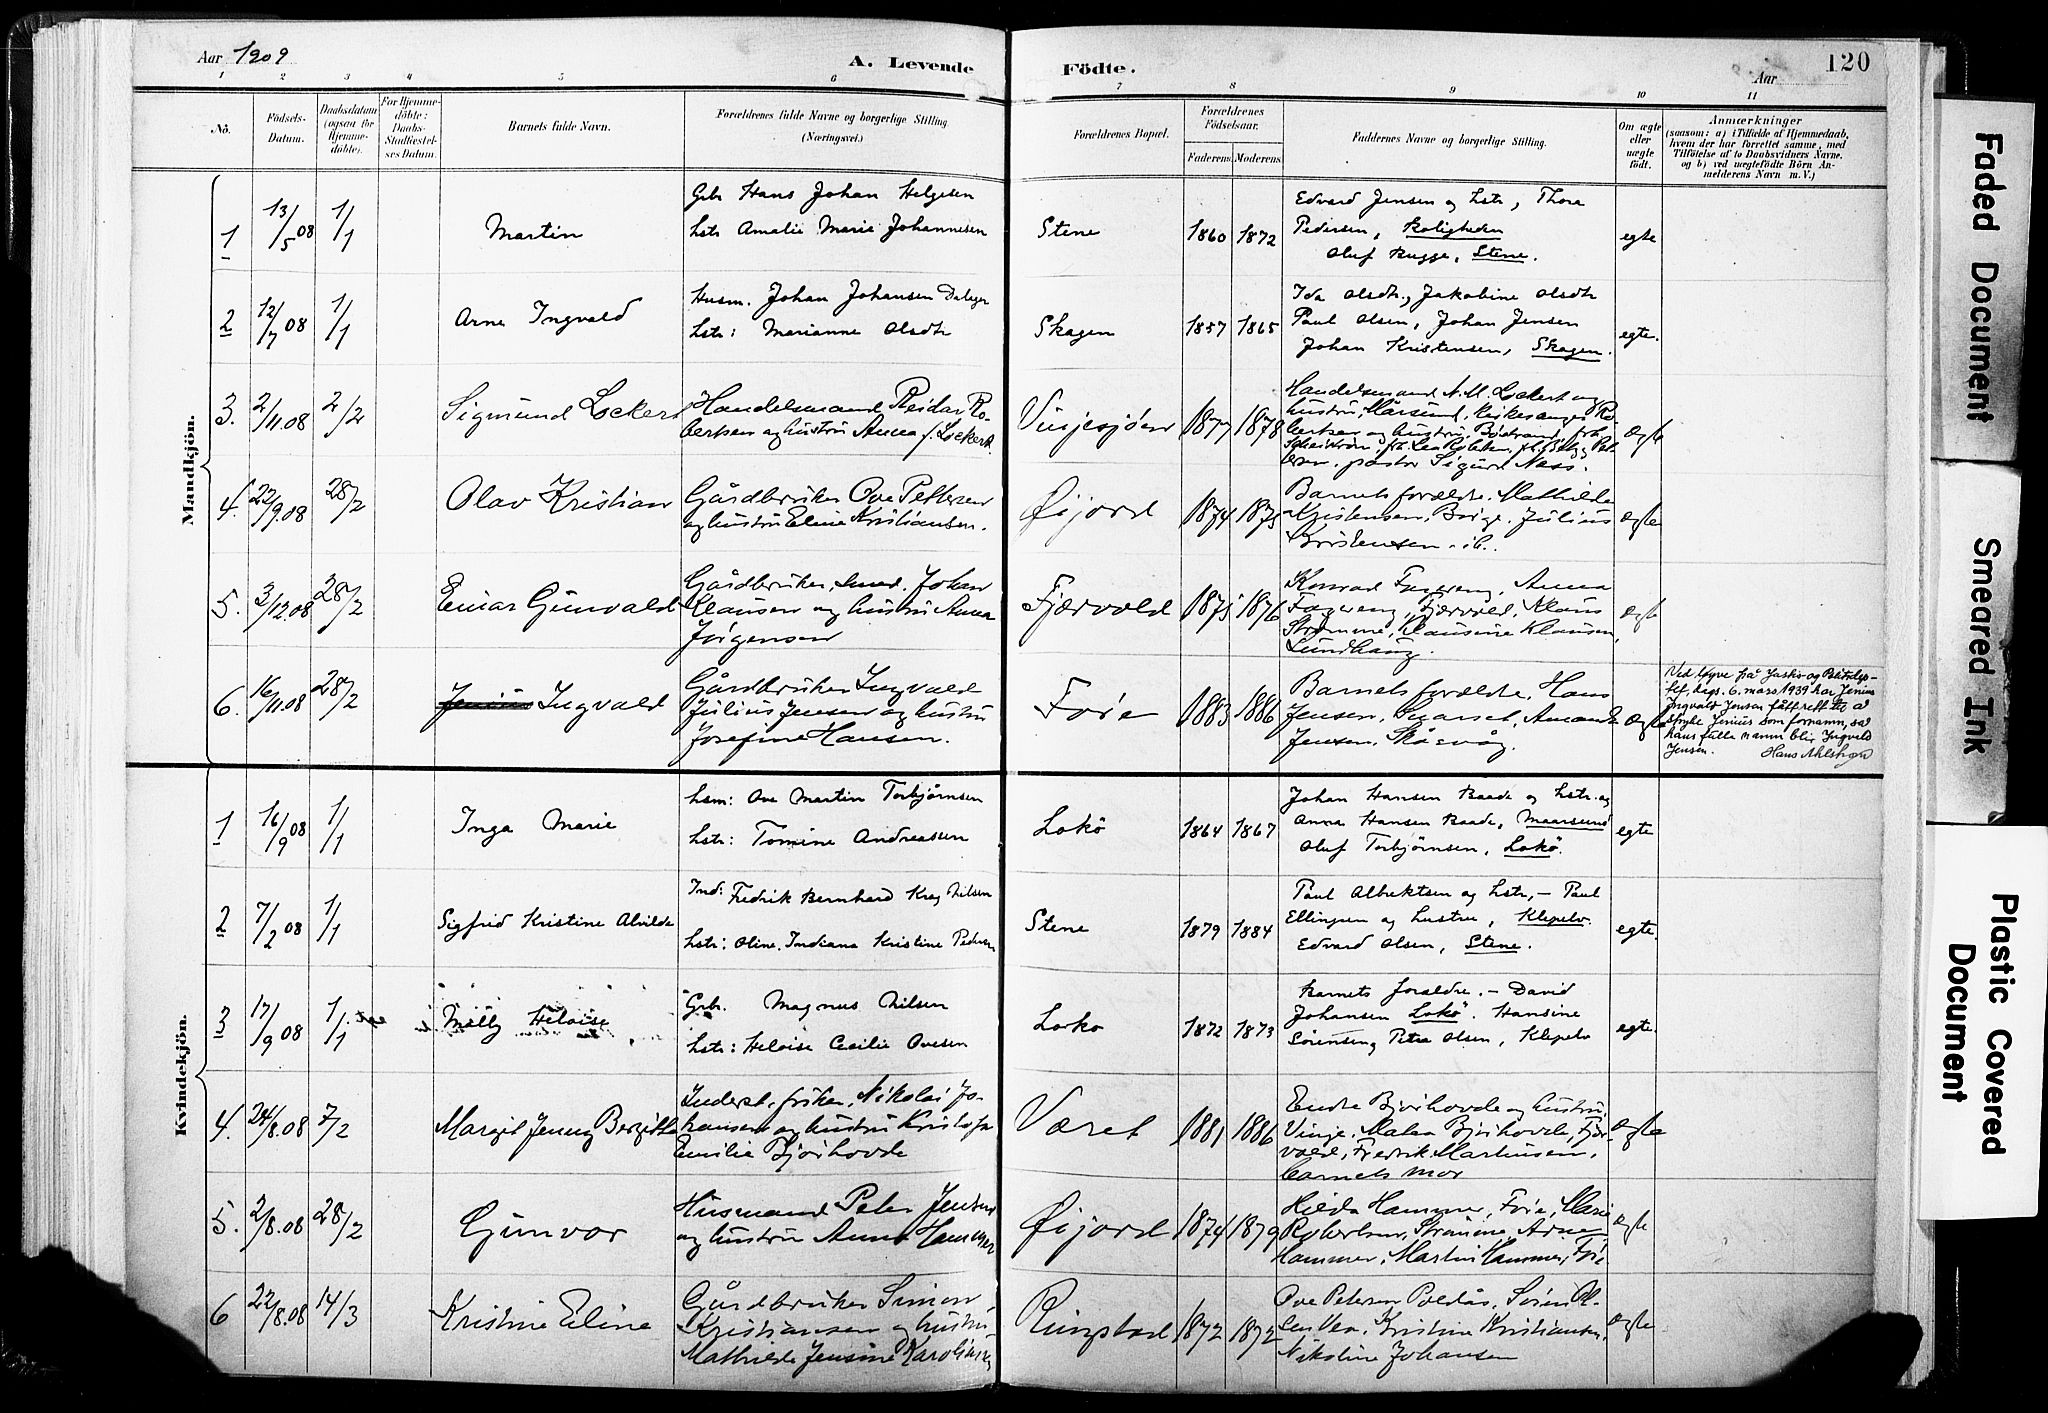 Aar 1909
A. Levende Födte.
120
Aar
1 2 3 4 5 6 7 8 9 10 11
No.
Födsels-Datum.
Daabsdatum (ogsaa for Hjemme-döbte).
For Hjemme-döbte: Daabs-Stadfæstel-ses Datum.
Barnets fulde Navn.
Forældrenes fulde Navne og borgerlige Stilling. (Næringsvei.)
Forældrenes Bopæl.
Forældrenes Födselsaar.
Faderens. Moderens.
Faddernes Navne og borgerlige Stilling.
Om ægte eller uægte födt.
Anmærkninger
(saasom: a) i Tilfælde af Hjemmedaab,
hvem der har forrettet samme, med
Tilföielse af to Daabsvidners Navne.
og b) ved uægtefödte Börn An-
melderens Navn m. V.)
Mandkjön.
1 13/5 08 1/1 Martin
Grb Hans Johan Helgesen
hstr Amalie Marie Johannesen
Stene 1860 1872
Edvard Jensen og hstr, Thora
Pedersen, Roligheden
Oluf Bugge, Stene.
egte
2 12/7 08 1/1 Arne Ingvald
Husm. Johan Johansen
hstr: Marianne Olsdtr
Skagen 1857 1865
Ida Olsdtr, Jakobine Olsdtr
Paul Olsen, Johan Jensen
Johan Kristensen, Skagen.
egte.
3. 2/11.08 2/2 Sigmund Lockert
Handelsmand Reidar Ro-
bertsen og hustru Anna f. Lockert.
Vinjesjøen 1877 1878
Handelsmand N. M. Lockert og
hustru, Maarsund, Kirkesanger Ro-
bertsen og hustru,
pastor Sigurd Ness.
Ægte
4. 22/9.08 28/2 Olav Kristian
Gårdbruker Ove Pettersen
og hustru Eline Kristiansen.
Øijord 1874 1875
Barnets forældre. Mathilde
Kristensen, Julius
Kristensen. ib.
Ægte
5. 3/12.08 28/2 Einar Gunvald
Gårdbruker, smed. Johan
Klausen og hustru Anna
Jörgensen
Fjærvold 1875 1876
Konrad Fagereng, Anna
Fagereng, Fjærvold, Klaus
Strømme, Klausine Klausen,
Lundhaug.
Ægte
6. 16/11.08 28/2 Jenius Ingvald
Gårdbruker Ingvald
Julius Jensen og hustru
Josefine Hansen.
Føre 1883 1886
Barnets forældre, Hans
Jensen, Svarset, Amanda
Jensen, Skåvåg.
Ægte
Ved løyve frå Justis- og Politidep-
tet, dags. 6. mars 1939 har Jenius
Ingvald Jensen fått rett til å
stryke Jenius som fornamn, så
hans fulle namn blir Ingvald
Jensen. Hans Ahlstrøm
Kvindekjön.
1 16/9 08 1/1 Inga Marie
hsm: Ove Martin Torbjørnsen
hstr: Tomine Andreassen
Lokö 1864 1867
Johan Hansen Baade og hstr. og
Anna Hansen Baade, Maarsund
Oluf Torbjørnsen, Lokö.
egte
2 7/2 08 1/1 Sigfrid Kristine Alvilde
Ind: Fredrik Bernhard Krey Nilsen
hstr: Oline Indiana Kristine Pedersen
Stene 1879 1884
Paul Albrektsen og hstr, – Paul
Ellingsen og hustru, Klepelv.
Edvard Olsen, Stene.
egte.
3 17/9 08 1/1 Molly Heloise
Grb. Magnus Nilsen
hstr: Heloise Cecilie Ovesen
Lokö 1872 1873
Barnets forældre. – David
Johansen Lokö. Hansine
Sörensen, Petra Olsen, Klepelv
egte.
4. 24/8.08 7/2 Margit Jenny Bergitte
Inderst, fisker, Nikolai Jo-
hansen og hustru Kristofa
Emilie Bjørhovde
Været 1881 1886
Endre Bjørhovde og hustru,
Vinje. Malea Bjørhovde, Fjær-
vold, Fredrik Martinsen,
barnets mor
Ægte
5. 2/8.08 28/2 Gunvor
Husmand Peter Jensen
og hustru Anna Hammer
Øijord 1874 1879
Hilda Hammer, Føre, Marie
Robertsen, Strømme, Arne
Hammer, Martin Hammer, Føre
Ægte
6 22/8.08 14/3 Kristine Eline
Gårdbruker Simon
Kristiansen og hustru
Mathilde Jensine Karoliusen
Ringstad 1872 1872
Ove Petersen Poldås, Sören Ol-
sen Vea, Kristine Kristiansen,
Nikoline Johansen
Ægte
Faded Document
Smeared Ink
Plastic Covered
Document